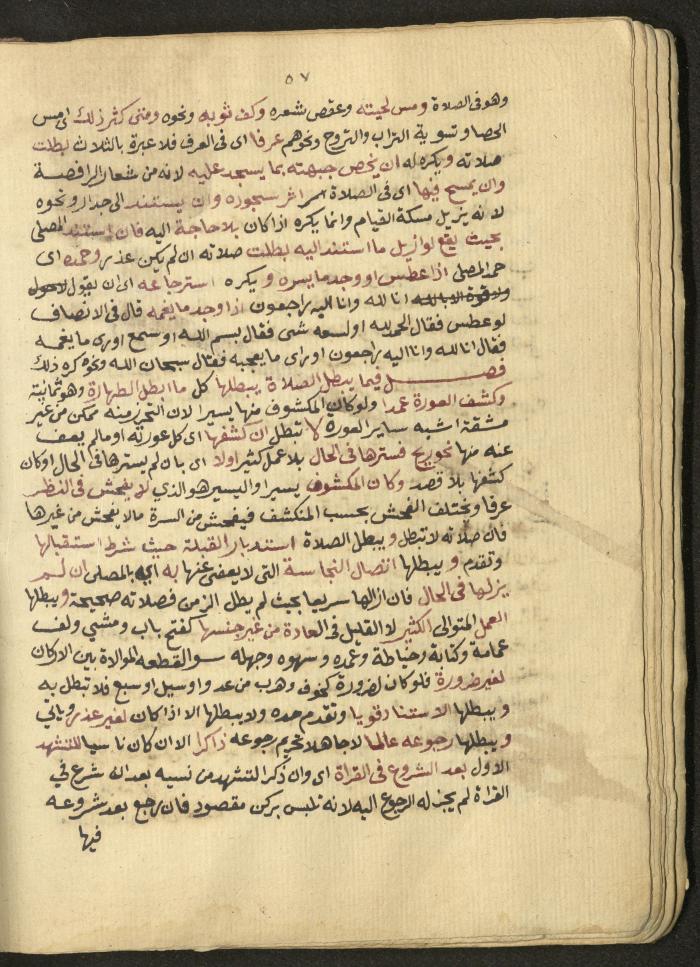 ٥٧
وهو في الصلاة ومس لحيته وعقص شعره وكف ثوبه ونحوه ومتى كثر ذلك اي مس
الحصا وتسوية التراب والتروح ونحوهم عرفا اى في العرف فلا عبرة بالثلاث بطلت
صلاته ويكره له ان يخص جبهته بما يسجد عليه لانه من شعار الرافضة
وان يمسح فيها اى في الصلاة اثر سجوده وان يستند الى جدار ونحوه
لانه يزيل مسكة القيام وانما يكره اذا كان بلا حاجة اليه فان استند المصلي
بحيث يقع لو ازيل ما استند اليه بطلت صلاته ان لم يكن عذر وحمده اى
حمد المصلى اذا عطس او وجد ما يسره ويكره استرجاعه اى ان يقول لاحول
ولاقوة الا بالله انا لله وانا اليه راجعون اذا وجد ما يغمه قال في الانصاف
لو عطس فقال الحمد لله او لسعه شى فقال بسم الله او سمع او رى ما يغمه
فقال انا لله وانا اليه راجعون او راى ما يعجبه فقال سبحان الله ونحوه كره ذلك
فصل فيما يبطل الصلاة يبطلها كل ما ابطل الطهارة وهو ثمانية
وكشف العورة عمدا ولو كان المكشوف منها يسيرا لان التحرز منه ممكن من غير
مشقة اشبه ساير العورة لا تبطل ان كشفها اى كل عورته او مالم يعف
عنه منها نحو ريح فسترها في الحال بلا عمل كثير اولا اى بان لم يسترها في الحال او كان
كشفها بلا قصد وكان المكشوف يسيرا واليسير هو الذي لا يفحش في النظر
عرفا ويختلف الفحش بحسب المنكشف فيفحش من السرة مالا يفحش من غيرها
فان صلاته لا تبطل ويبطل الصلاة استدبار القبلة حيث شرط استقبالها
وتقدم ويبطلها اتصال النجاسة التى لا يعفى عنها به اى بالمصلى ان لم
يزلها في الحال فان ازالها سريعا بحيث لم يطل الزمن فصلاته صحيحة ويبطلها
العمل المتوالى الكثير لا القليل في العادة من غير جنسها كفتح باب ومشي ولف
عمامة وكتابة وخياطة وعمده وسهوه وجهله سوا لقطعه الموالاة بين الاركان
لغير ضرورة فلو كان لضرورة كخوف وهرب من عدو او سيل او سبع فلا تبطل به
ويبطلها الاستناد قويا وتقدم حده ولا يبطلها الا اذا كان لغير عذر وياتي
ويبطلها رجوعه عالما لا جاهلا تحريم رجوعه ذاكرا الا ان كان ناسيا للتشهد
الاول بعد الشروع في القراة اى وان ذكر التشهد من نسيه بعد ان شرع في
القراة لم يجز له الرجوع اليه لانه تلبس بركن مقصود فان رجع بعد شروعه
فيها